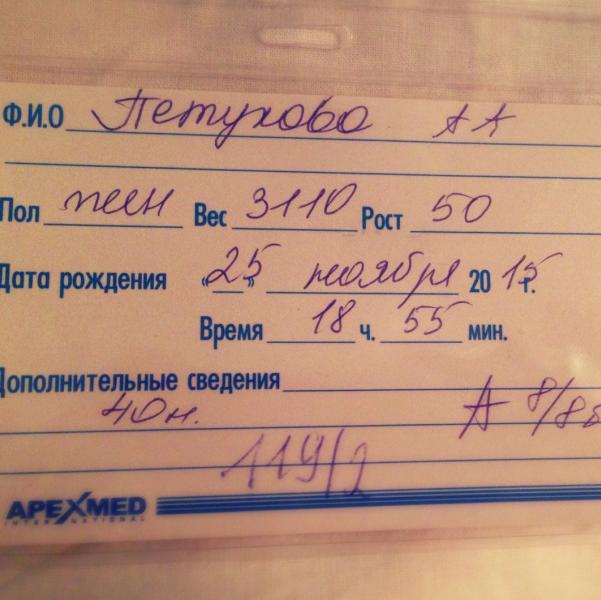 Ф.И.О Петухова А А
Пол жен Вес 3110 Рост 50
Дата рождения «25» ноября 2015 г.
Время 18 ч. 55 мин.
Дополнительные сведения
40н. А 8/8б
119/2
APEXMED
INTERNATIONAL